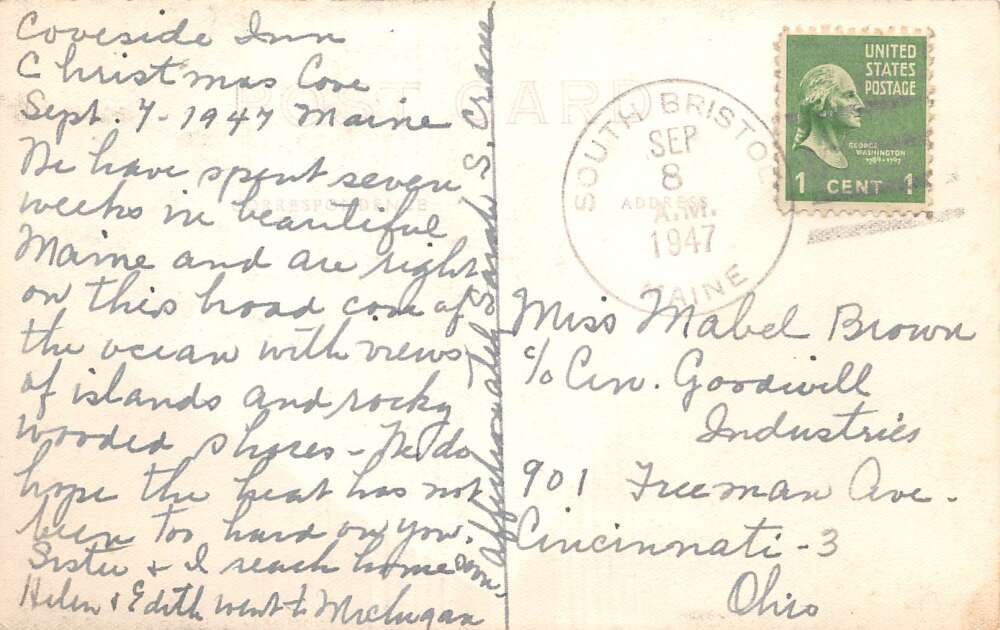 Coveside Inn
Christmas Cove
Sept. 7-1947 Maine
We have spent seven
weeks in beautiful
Maine and are right
on this broad cove of
the ocean with views
of islands and rocky
wooded shores - We do
hope the heat has not
been too hard on you.
Sister & I reach home soon,
Helen & Edith went to Michigan
Affectionately Sarah S. Crane
POST CARD
CORRESPONDENCE
ADDRESS
SOUTH BRISTOL
SEP
8
A.M.
1947
MAINE
UNITED
STATES
POSTAGE
GEORGE
WASHINGTON
1789-1797
1 CENT 1
Miss Mabel Brown
c/o Cin. Goodwill
Industries
901 Freeman Ave.
Cincinnati - 3
Ohio